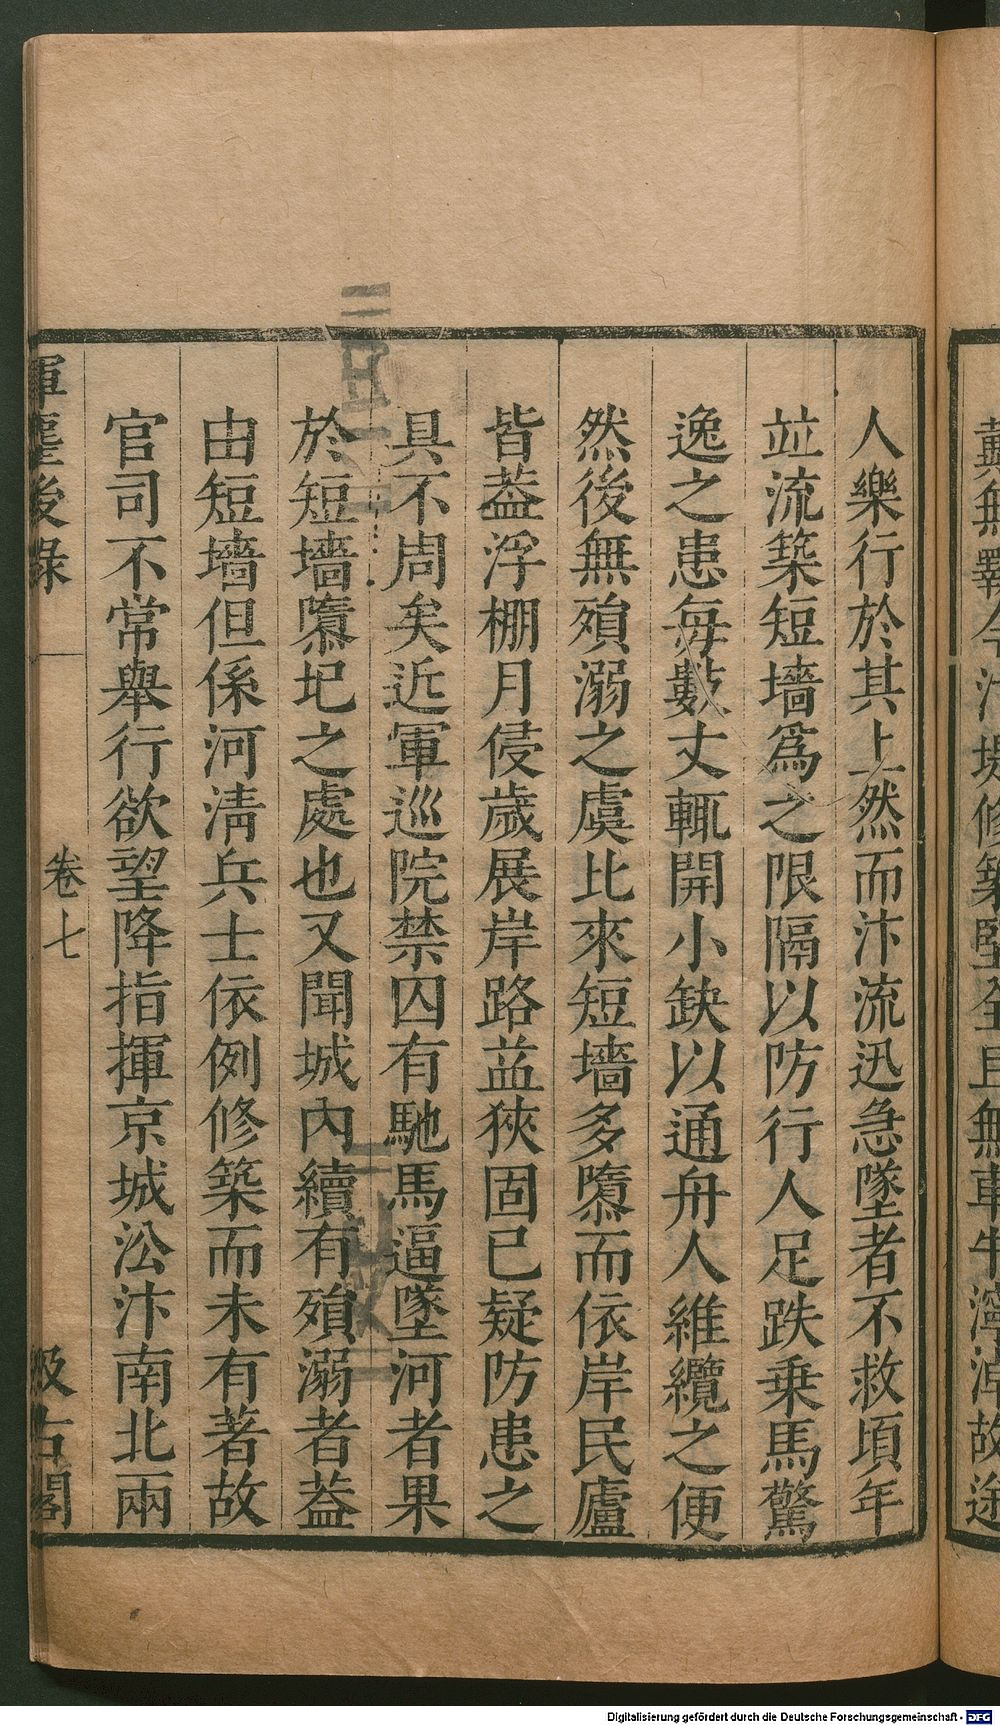 人樂行於其上然而汴流迅急墜者不救頃年
並流築短墻爲之限隔以防行人足跌乗馬驚
逸之患每數丈輒開小缺以通舟人維纜之便
然後無殞溺之虞比來短墻多隳而依岸民廬
皆葢浮棚月侵歲展岸路益狹固已疑防患之
具不周矣近軍巡院禁囚有馳馬逼墜河者果
於短墻隳圮之處也又聞城內續有殞溺者葢
由短墻但係河淸兵士依例修築而未有著故
官司不常舉行欲望降指揮京城㳂汴南北兩
揮麈後錄
卷七
汲古閣
Digitalisierung gefördert durch die Deutsche Forschungsgemeinschaft - DFG